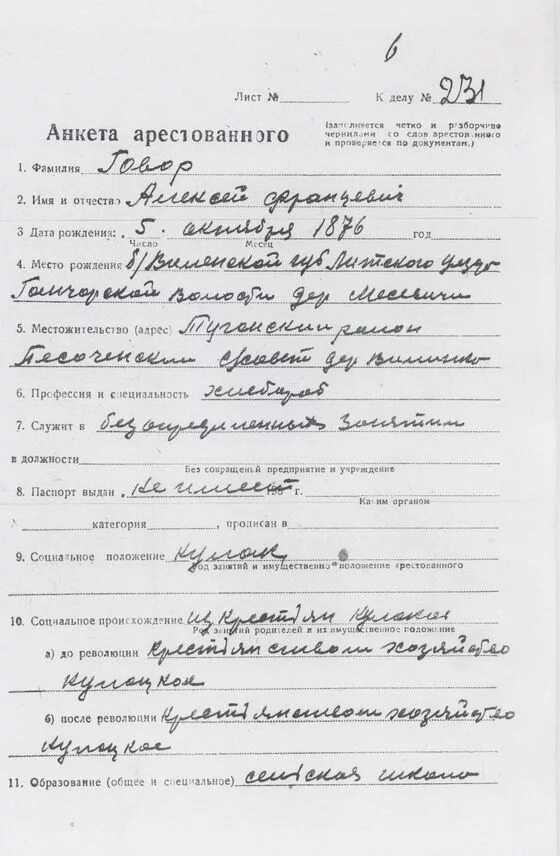 6
Лист № К делу № 231
Анкета арестованного
(заполняется четко и разборчиво
чернилами со слов арестованного
и проверяется по документам.)
1. Фамилия Говор
2. Имя и отчество Алексей Францевич
3 Дата рождения: 5. октября 1876 год
Число Месяц
4. Место рождения б/Виленской губ Литского уезда
Гончарской волости дер Месевичи
5. Местожительство (адрес) Туганский район
Песоченский с/совет дер Вилинка
6. Профессия и специальность хлебороб
7. Служит в без определенных занятии
в должности
Без сокращений предприятие и учреждение
8. Паспорт выдан не имеет 193 г.
Каким органом
категория , прописан в
9. Социальное положение кулак
Род занятий и имущественно положение арестованного
10. Социальное происхождение из крестьян кулаков
Род занятий родителей и их имущественное положение
а) до революции крестьянством хозяйство
кулацкое
б) после революции крестьянством хозяйство
кулацкое
11. Образование (общее и специальное) сельская школа